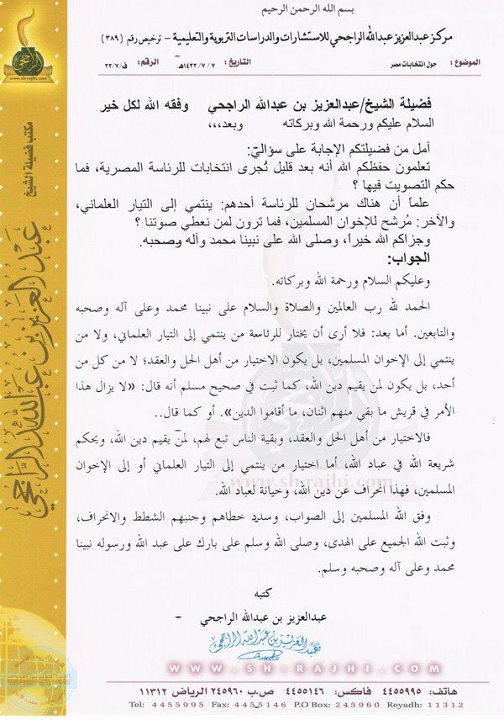 بسم الله الرحمن الرحيم
مركز عبدالعزيز عبدالله الراجحي للاستشارات والدراسات التربوية والتعليمية - ترخيص رقم (٣٨٩)
الموضوع : حول انتخابات مصر التاريخ : ١٤٣٣/٧/٧هـ الرقم: ف/٢٣/٧
فضيلة الشيخ/عبدالعزيز بن عبدالله الراجحي وفقه الله لكل خير
السلام عليكم ورحمة الله وبركاته وبعد،،،
آمل من فضيلتكم الإجابة على سؤاليّ:
تعلمون حفظكم الله أنه بعد قليل تُجرى انتخابات للرئاسة المصرية، فما
حكم التصويت فيها ؟
علماً أن هناك مرشحان للرئاسة أحدهم: ينتمي إلى التيار العلماني،
والآخر: مُرشح للإخوان المسلمين، فما ترون لمن نعطي صوتنا ؟
وجزاكم الله خيراً، وصلى الله على نبينا محمد وآله وصحبه.
الجواب:
وعليكم السلام ورحمة الله وبركاته.
الحمد لله رب العالمين والصلاة والسلام على نبينا محمد وعلى آله وصحبه
والتابعين. أما بعد: فلا أرى أن يختار للرئاسة من ينتمي إلى التيار العلماني، ولا من
ينتمي إلى الإخوان المسلمين، بل يكون الاختيار من أهل الحل والعقد؛ لا من كل من
أحد، بل يكون لمن يقيم دين الله، كما ثبت في صحيح مسلم أنه قال: «لا يزال هذا
الأمر في قريش ما بقي منهم اثنان، ما أقاموا الدين». أو كما قال..
فالاختيار من أهل الحل والعقد، وبقية الناس تبع لهم، لمن يقيم دين الله، ويحكم
شريعة الله في عباد الله، أما اختيار من ينتمي إلى التيار العلماني أو إلى الإخوان
المسلمين، فهذا انحراف عن دين الله، وخيانة لعباد الله.
وفق الله المسلمين إلى الصواب، وسديد خطاهم وجنبهم الشطط والانحراف،
وثبت الله الجميع على الهدى، وصلى الله وسلم على بارك على عبد الله ورسوله نبينا
محمد وعلى آله وصحبه وسلم.
كتبه
عبدالعزيز بن عبدالله الراجحي
عبدالعزيز بن عبدالله الراجحي
WWW.SH-RAJHI.COM
هاتف: ٤٤٥٥٩٩٥ فاكس: ٤٤٥٥١٤٦ ص.ب ٢٤٥٩٦٠ الرياض ١١٣١٢
Tel: 4455995 Fax: 4455146 P.O.Box 245960 Reyadh: 11312
مكتب فضيلة الشيخ
عبدالعزيز بن عبدالله الراجحي
www.sh-rajhi.com